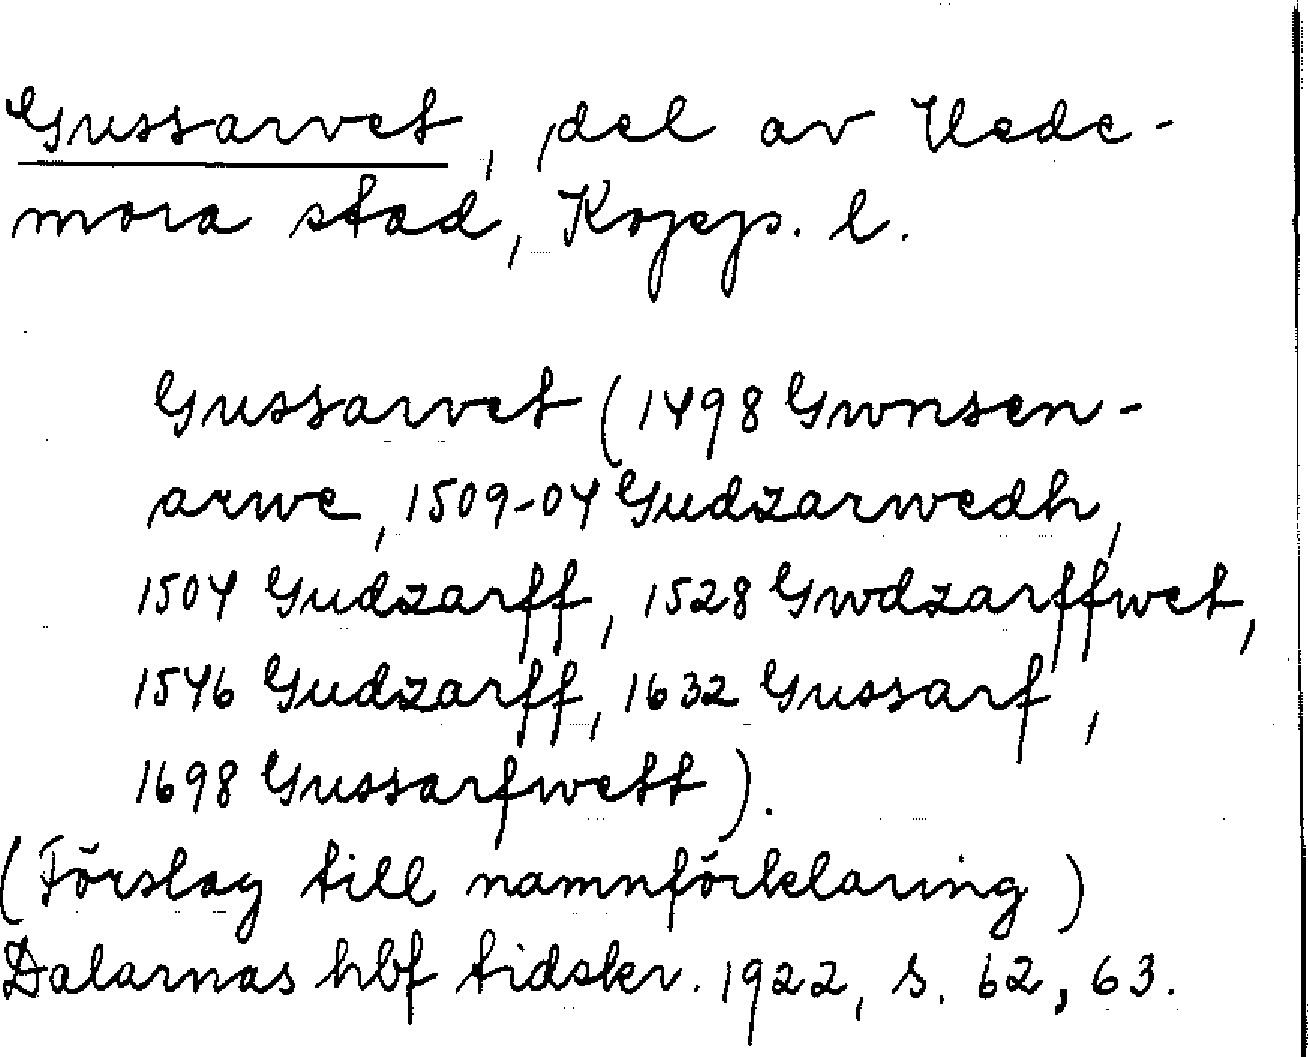 Gussarvet, del av Hede-
mora stad, Kopp. l.
Gussarvet (1498 Gwnsen-
arwe, 1509-04 Gudzarwedh,
1504 Gudzarff, 1528 Gwdzarffwet,
1546 Gudzarff, 1632 Gussarf,
1698 Gussarfwett).
(Förslag till namnförklaring)
Dalarnas hbf tidskr. 1922, s. 62, 63.